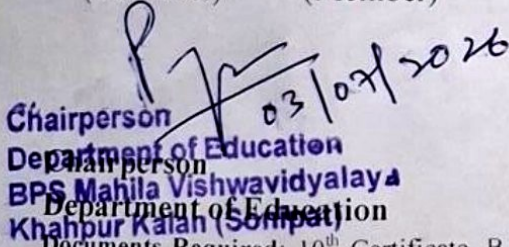 03/07/2026
Chairperson
Department of Education
BPS Mahila Vishwavidyalaya
Khanpur Kalan (Sonipat)
Chairperson
Department of Education
Documents Required: 10th Certificate, B